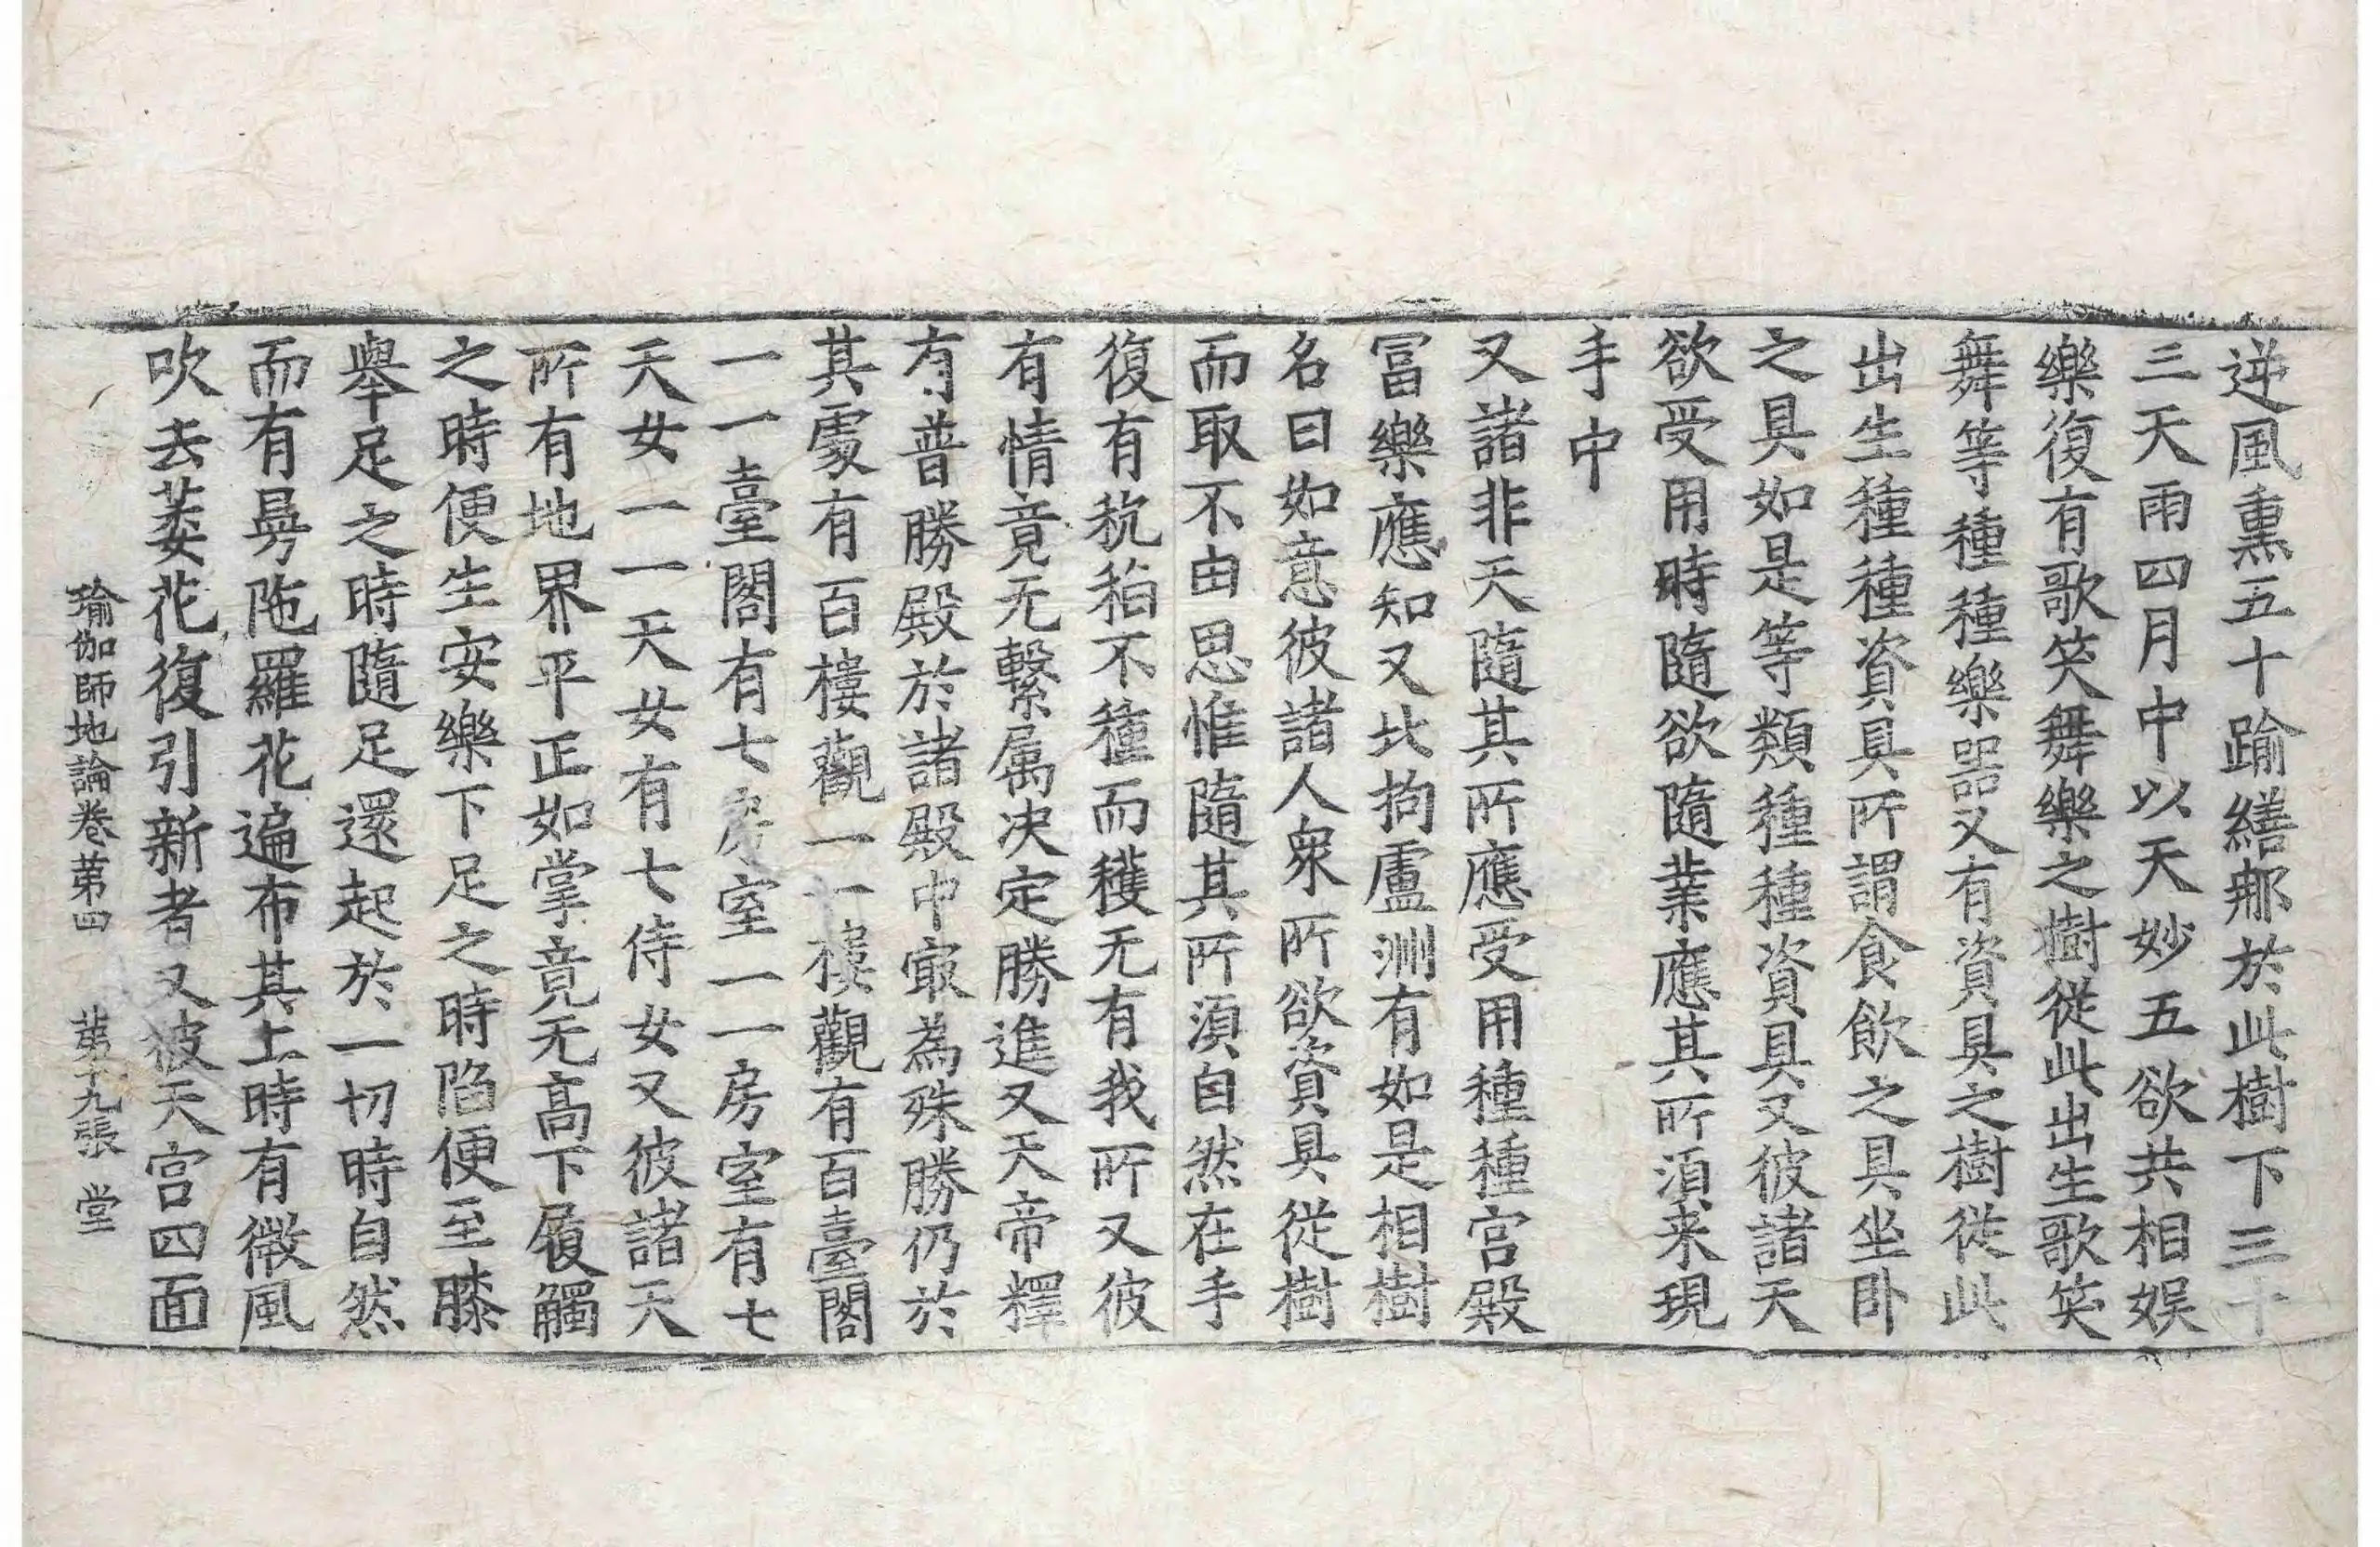 逆風熏五十踰繕那於此樹下三十
三天雨四月中以天妙五欲共相娱
樂復有歌笑舞樂之樹從此出生歌笑
舞等種種樂器又有資具之樹從此
出生種種資具所謂食飲之具坐卧
之具如是等類種種資具又彼諸天
欲受用時隨欲隨業應其所湏来現
手中
又諸非天隨其所應受用種種宫殿
冨樂應知又北拘盧洲有如是相樹
名曰如意彼諸人衆所欲資具從樹
而取不由思惟隨其所湏自然在手
復有秔稻不種而穫无有我所又彼
有情竟无繫属决定勝進又天帝釋
有普勝殿於諸殿中㝡為殊勝仍於
其處有百樓觀一一樓觀有百臺閣
一一臺閣有七房室一一房室有七
天女一一天女有七侍女又彼諸天
所有地界平正如掌竟无高下履觸
之時便生安樂下足之時陷便至膝
舉足之時隨足還起於一切時自然
而有曼陁羅花遍布其上時有微風
吹去萎花復引新者又彼天宫四面
瑜伽師地論卷苐四 苐十九張 堂